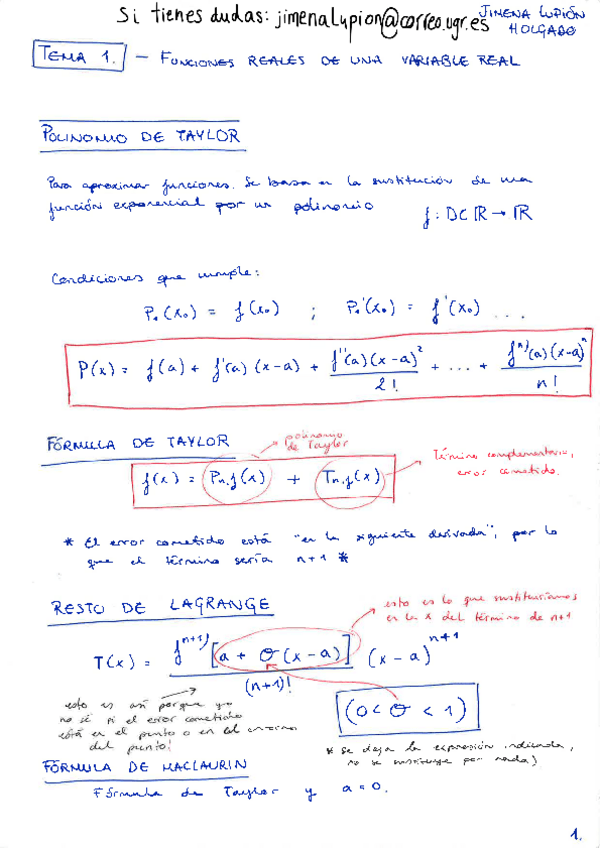 Si tienes dudas: jimenalupion@correo.ugr.es
JIMENA LUPIÓN
HOLGADO
TEMA 1. - FUNCIONES REALES DE UNA VARIABLE REAL
POLINOMIO DE TAYLOR
Para aproximar funciones. Se basa en la sustitución de una
función exponencial por un polinomio f: D⊂ℝ→ℝ
Condiciones que cumple:
P₀(x₀) = f(x₀) ; P₀'(x₀) = f'(x₀) ...
P(x) = f(a) + f'(a)(x-a) + f''(a)(x-a)²/2! + ... + fⁿ⁾(a)(x-a)ⁿ/n!
FÓRMULA DE TAYLOR
polinomio
de Taylor
f(x) = Pn,f(x) + Tn,f(x)
Término complementario,
error cometido.
* El error cometido está "en la siguiente derivada", por lo
que el término sería n+1 *
RESTO DE LAGRANGE
esto es lo que sustituimos
en la x del término de n+1
T(x) = fⁿ⁺¹⁾[a + θ(x-a)]/(n+1)! (x-a)ⁿ⁺¹
(0 < θ < 1)
esto es así porque yo
no sé si el error cometido
está en el punto o en el entorno
del punto!
* se deja la expresión indicada,
no se sustituye por nada)
FÓRMULA DE MACLAURIN
Fórmula de Taylor y a = 0.
1.